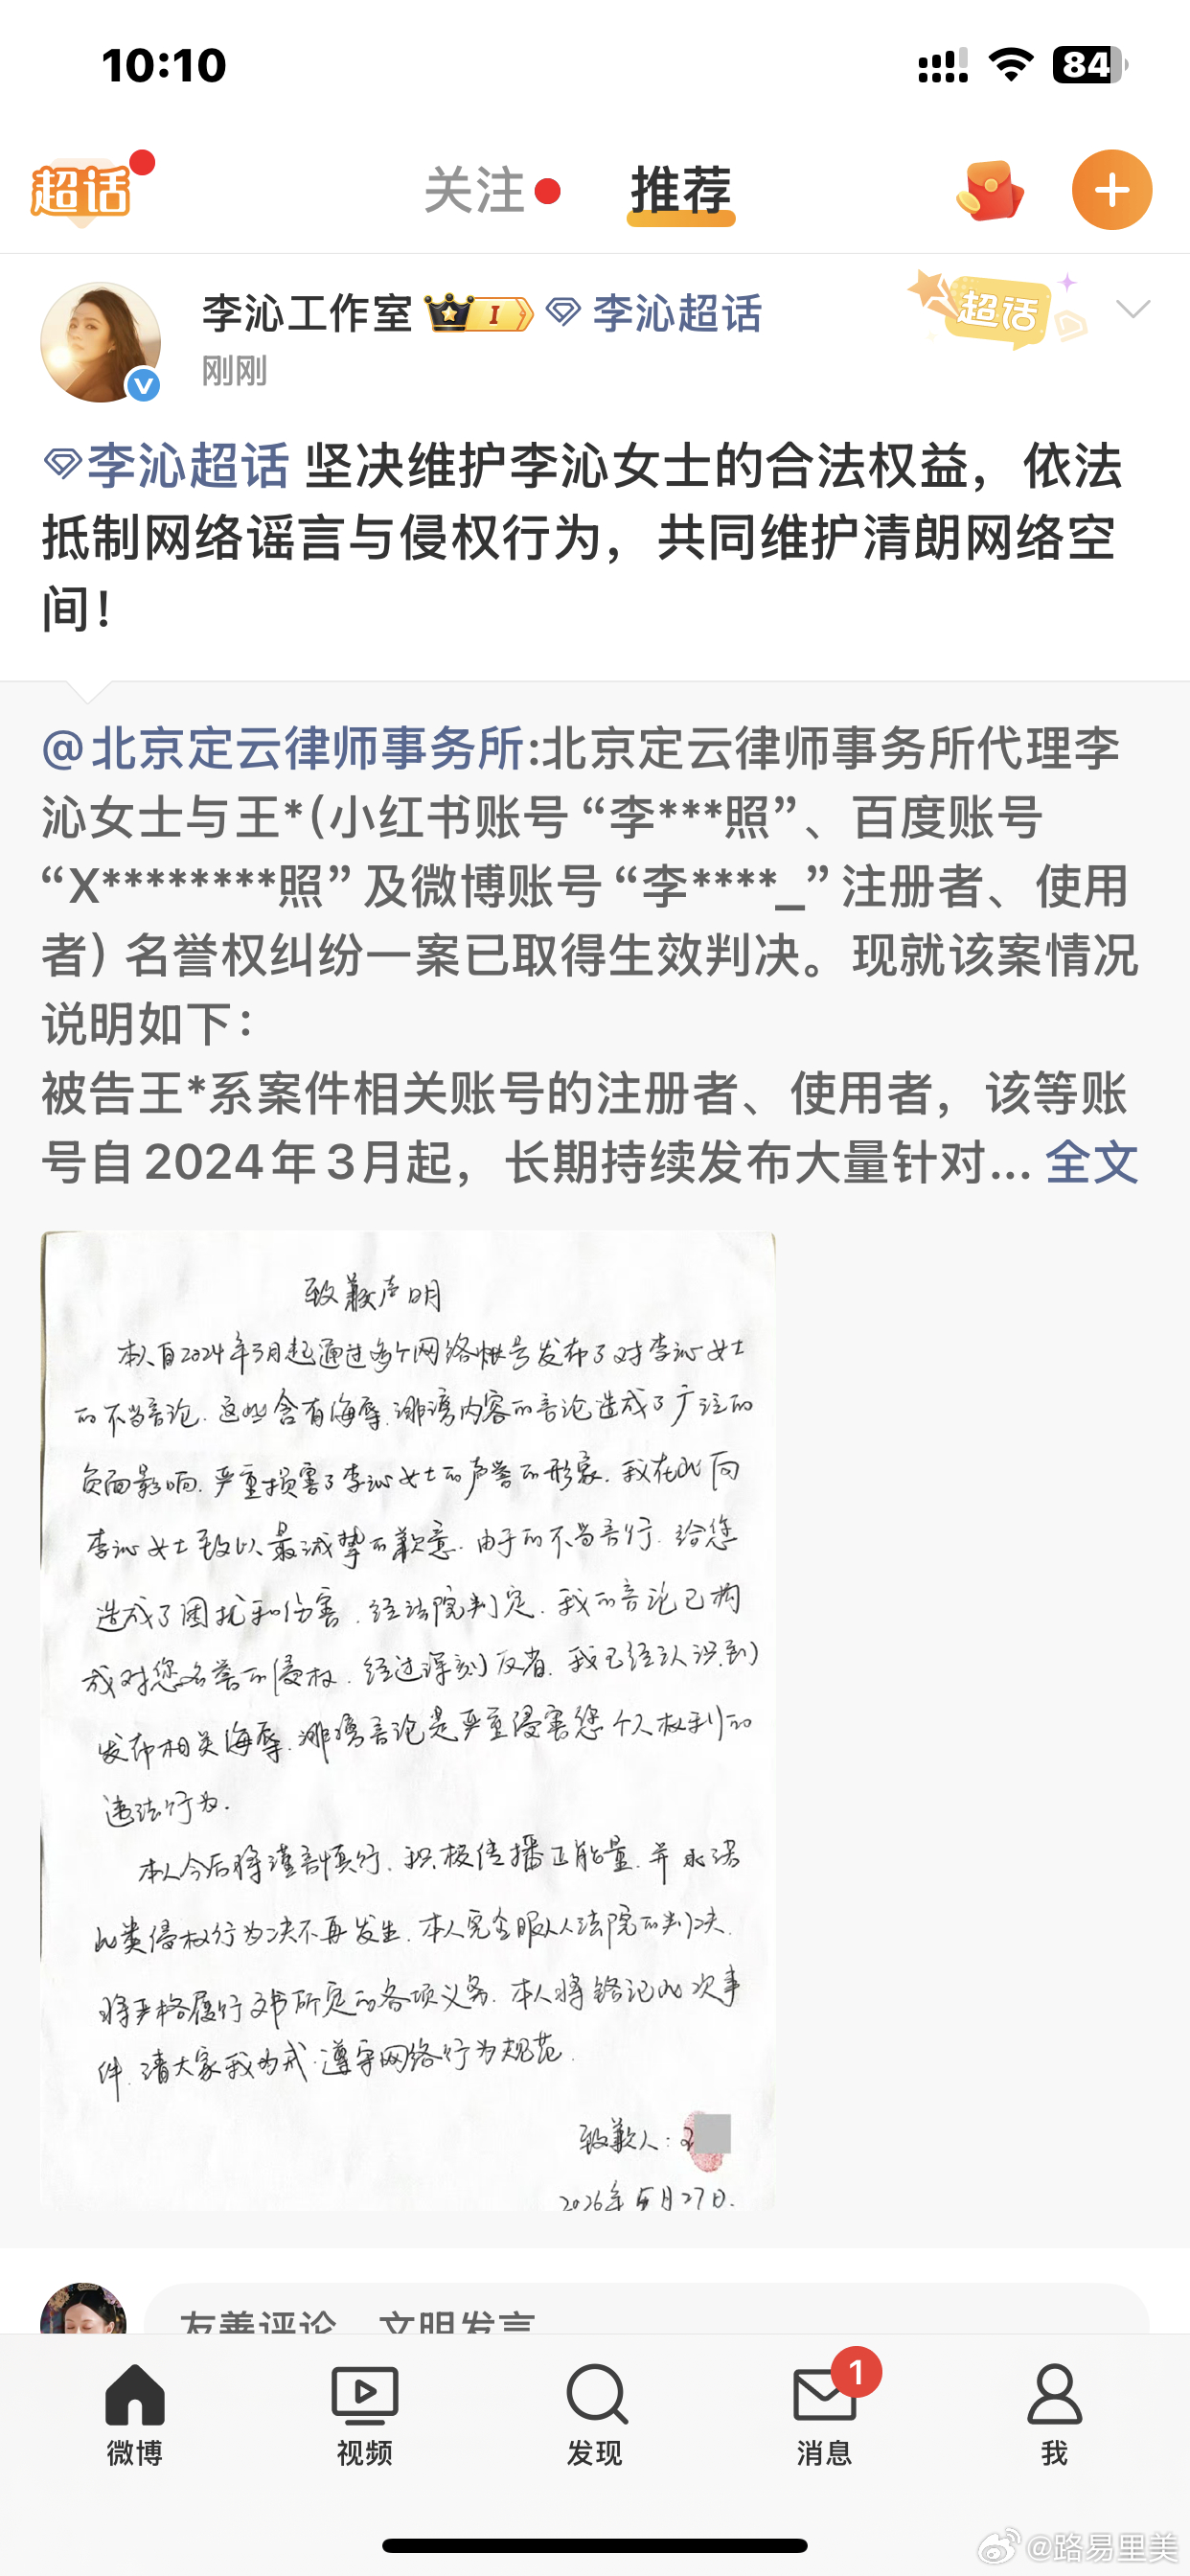 10:10
84
超话
关注
推荐
李沁工作室 I 李沁超话
超话
刚刚
李沁超话 坚决维护李沁女士的合法权益，依法
抵制网络谣言与侵权行为，共同维护清朗网络空
间！
@北京定云律师事务所:北京定云律师事务所代理李
沁女士与王*(小红书账号“李***照”、百度账号
“X********照”及微博账号“李****_”注册者、使用
者) 名誉权纠纷一案已取得生效判决。现就该案情况
说明如下：
被告王*系案件相关账号的注册者、使用者，该等账
号自2024年3月起，长期持续发布大量针对... 全文
致歉声明
本人自2024年3月起通过多个网络账号发布了对李沁女士
的不当言论.这些含有侮辱.诽谤内容的言论造成了广泛的
负面影响.严重损害了李沁女士的声誉的形象.我在此向
李沁女士致以最诚挚的歉意.由于的不当言行.给您
造成了困扰和伤害.经法院判定.我的言论已构
成对您名誉的侵权.经过深刻反省.我已经认识到
发布相关侮辱.诽谤言论是严重侵害您个人权利的
违法行为.
本人今后将谨言慎行.积极传播正能量.并承诺
此类侵权行为决不再发生.本人完全服从人法院的判决.
将严格履行文书所定的各项义务.本人将铭记此次事
件.请大家我为戒.遵守网络行为规范.
致歉人:
2026年5月27日.
友善评论 文明发言
微博
视频
发现
1
消息
我
@路易里美